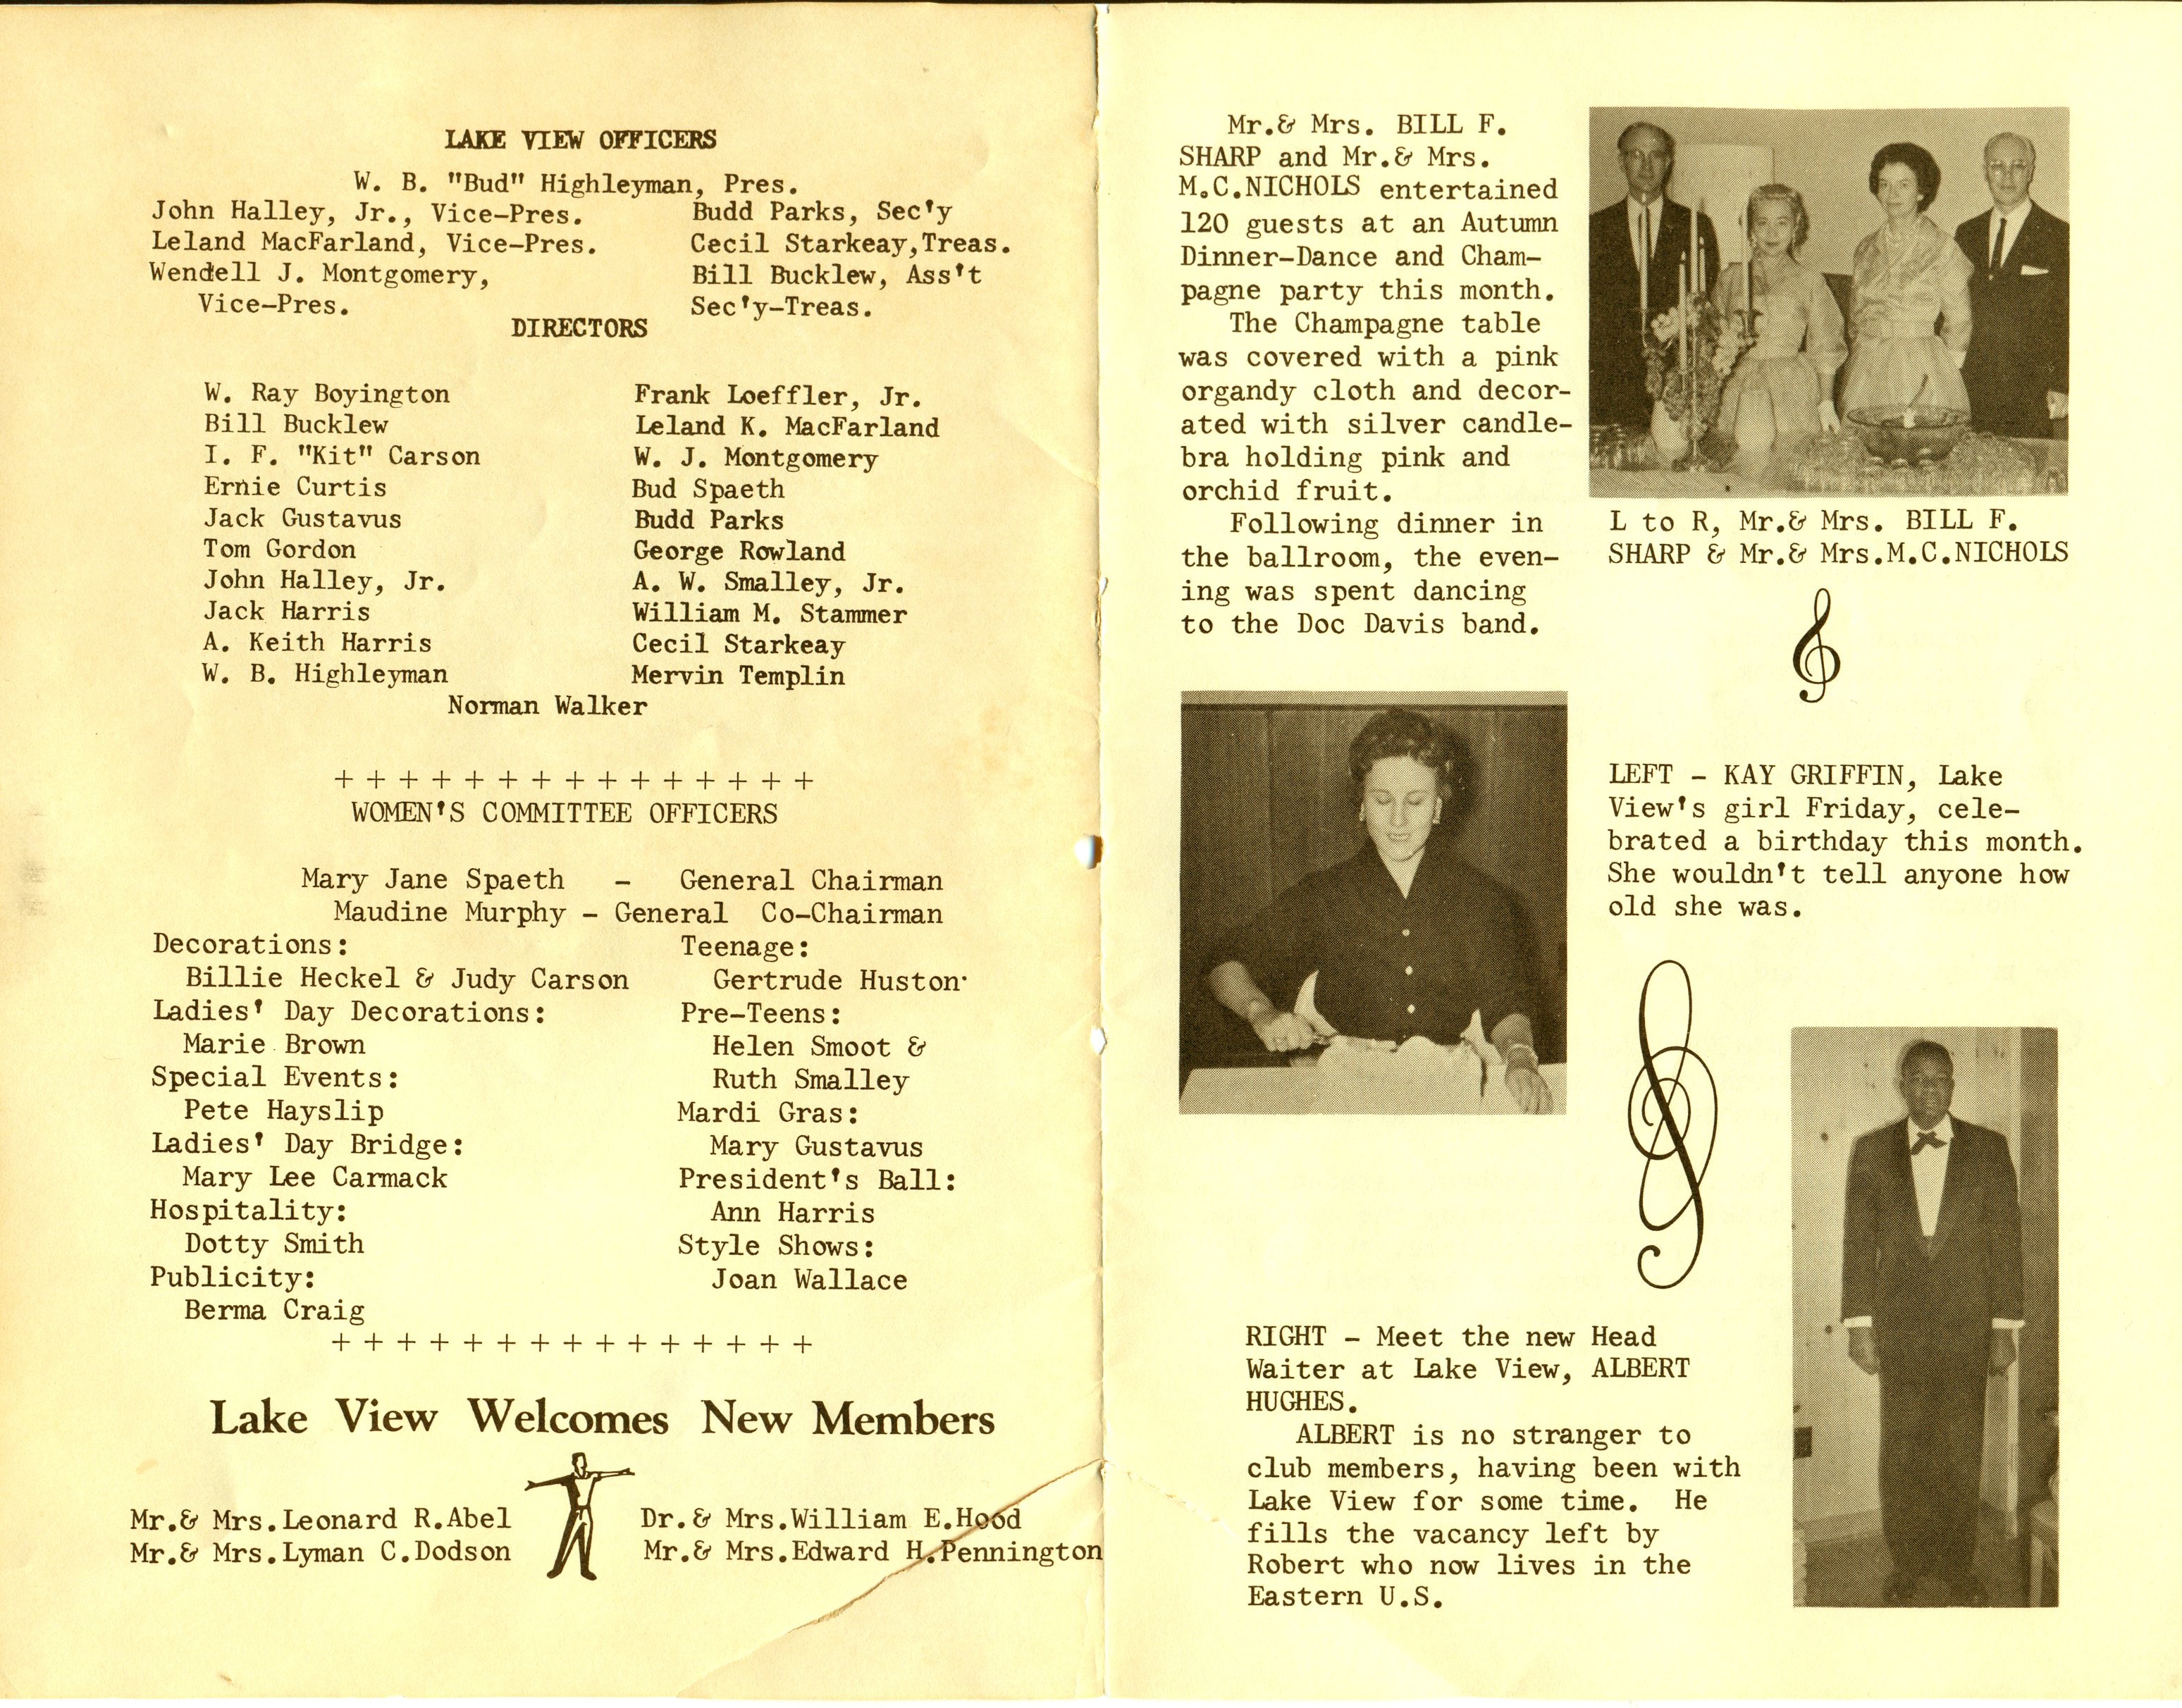 LAKE VIEW OFFICERS
W. B. "Bud" Highleyman, Pres.
John Halley, Jr., Vice-Pres.
Leland MacFarland, Vice-Pres.
Wendell J. Montgomery,
Vice-Pres.
Budd Parks, Sec'y
Cecil Starkeay,Treas.
Bill Bucklew, Ass't
Sec'y-Treas.
DIRECTORS
W. Ray Boyington
Bill Bucklew
I. F. "Kit" Carson
Ernie Curtis
Jack Gustavus
Tom Gordon
John Halley, Jr.
Jack Harris
A. Keith Harris
W. B. Highleyman
Frank Loeffler, Jr.
Leland K. MacFarland
W. J. Montgomery
Bud Spaeth
Budd Parks
George Rowland
A. W. Smalley, Jr.
William M. Stammer
Cecil Starkeay
Mervin Templin
Norman Walker
+ + + + + + + + + + + + + + +
WOMEN'S COMMITTEE OFFICERS
Mary Jane Spaeth - General Chairman
Maudine Murphy - General Co-Chairman
Decorations:
Billie Heckel & Judy Carson
Ladies' Day Decorations:
Marie Brown
Special Events:
Pete Hayslip
Ladies' Day Bridge:
Mary Lee Carmack
Hospitality:
Dotty Smith
Publicity:
Berma Craig
Teenage:
Gertrude Huston
Pre-Teens:
Helen Smoot &
Ruth Smalley
Mardi Gras:
Mary Gustavus
President's Ball:
Ann Harris
Style Shows:
Joan Wallace
+ + + + + + + + + + + + + + +
Lake View Welcomes New Members
Mr.& Mrs.Leonard R.Abel
Mr.& Mrs.Lyman C.Dodson
Dr.& Mrs.William E.Hood
Mr.& Mrs.Edward H.Pennington
Mr.& Mrs. BILL F.
SHARP and Mr.& Mrs.
M.C.NICHOLS entertained
120 guests at an Autumn
Dinner-Dance and Cham-
pagne party this month.
The Champagne table
was covered with a pink
organdy cloth and decor-
ated with silver candle-
bra holding pink and
orchid fruit.
Following dinner in
the ballroom, the even-
ing was spent dancing
to the Doc Davis band.
L to R, Mr.& Mrs. BILL F.
SHARP & Mr.& Mrs.M.C.NICHOLS
LEFT - KAY GRIFFIN, Lake
View's girl Friday, cele-
brated a birthday this month.
She wouldn't tell anyone how
old she was.
RIGHT - Meet the new Head
Waiter at Lake View, ALBERT
HUGHES.
ALBERT is no stranger to
club members, having been with
Lake View for some time. He
fills the vacancy left by
Robert who now lives in the
Eastern U.S.